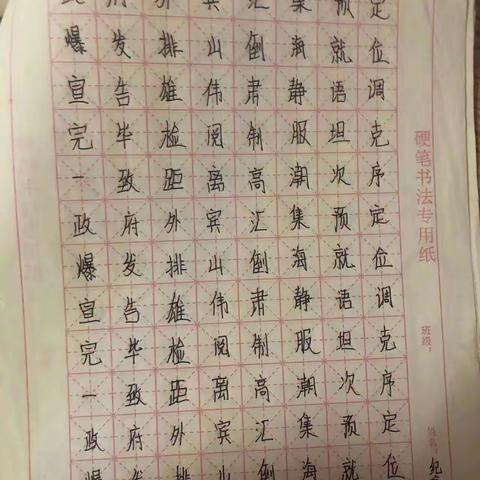 政府外宾汇集预定
爆发排山倒海就位
宣告雄伟肃静语调
完毕检阅制服坦克
一致距离高潮次序
政府外宾汇集预定
爆发排山倒海就位
宣告雄伟肃静语调
完毕检阅制服坦克
一致距离高潮次序
政府外宾汇集预定
爆发排山倒海就位
硬笔书法专用纸
班级：
姓名：纪